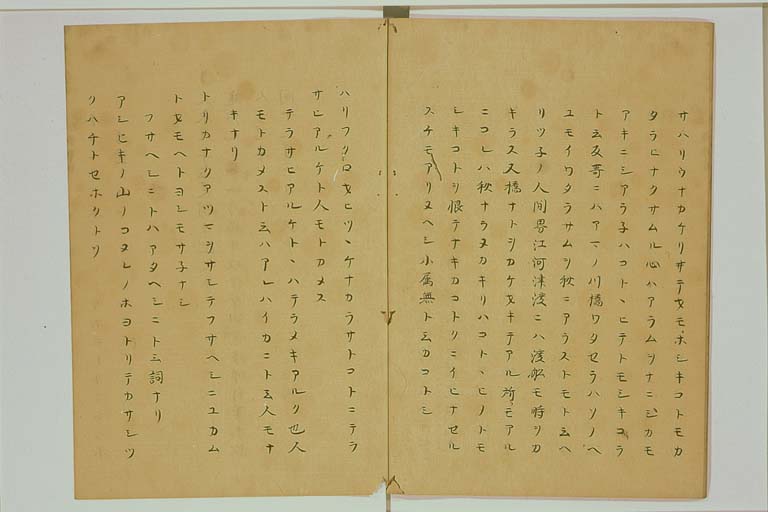 サハリウナカケリヰテ女モホシキコトモカ
タラヒナクサムル心ハアラムソナニシカモ
アキニシアラ子ハコトヽヒテトモシキコラ
ト云反哥ニハアマノ川橋ワタセラハソノヘ
ユモイワタラサムヲ秋ニアラストモト云ヘ
リツ子ノ人間界江河津渡ニハ渡舩モ時ヲカ
キラス又橋ナトヲカケ女キテアル所モアル
ニコレハ秋ナラヌカキリハコトヽヒノトモ
シキコトヲ恨テナキカコトクニイヒナセル
スチモアリヌヘシ小属無ト云カコトシ
ハリフクロ女ヒツヽケナカラサトコトニテラ
サヒアルケト人モトカメス
テラサヒアルケトヽハテラメキアルク也人
モトカメスト云ハアレハイカニト云人モナ
キナリ
トリカナクアツマヲサシテフサヘシニユカム
ト女モヘトヨシモサ子ナシ
フサヘシニトハアタヘシニト云詞ナリ
アシヒキノ山ノコヌレノホヨトリテカサシツ
ラハチトセホクトソ